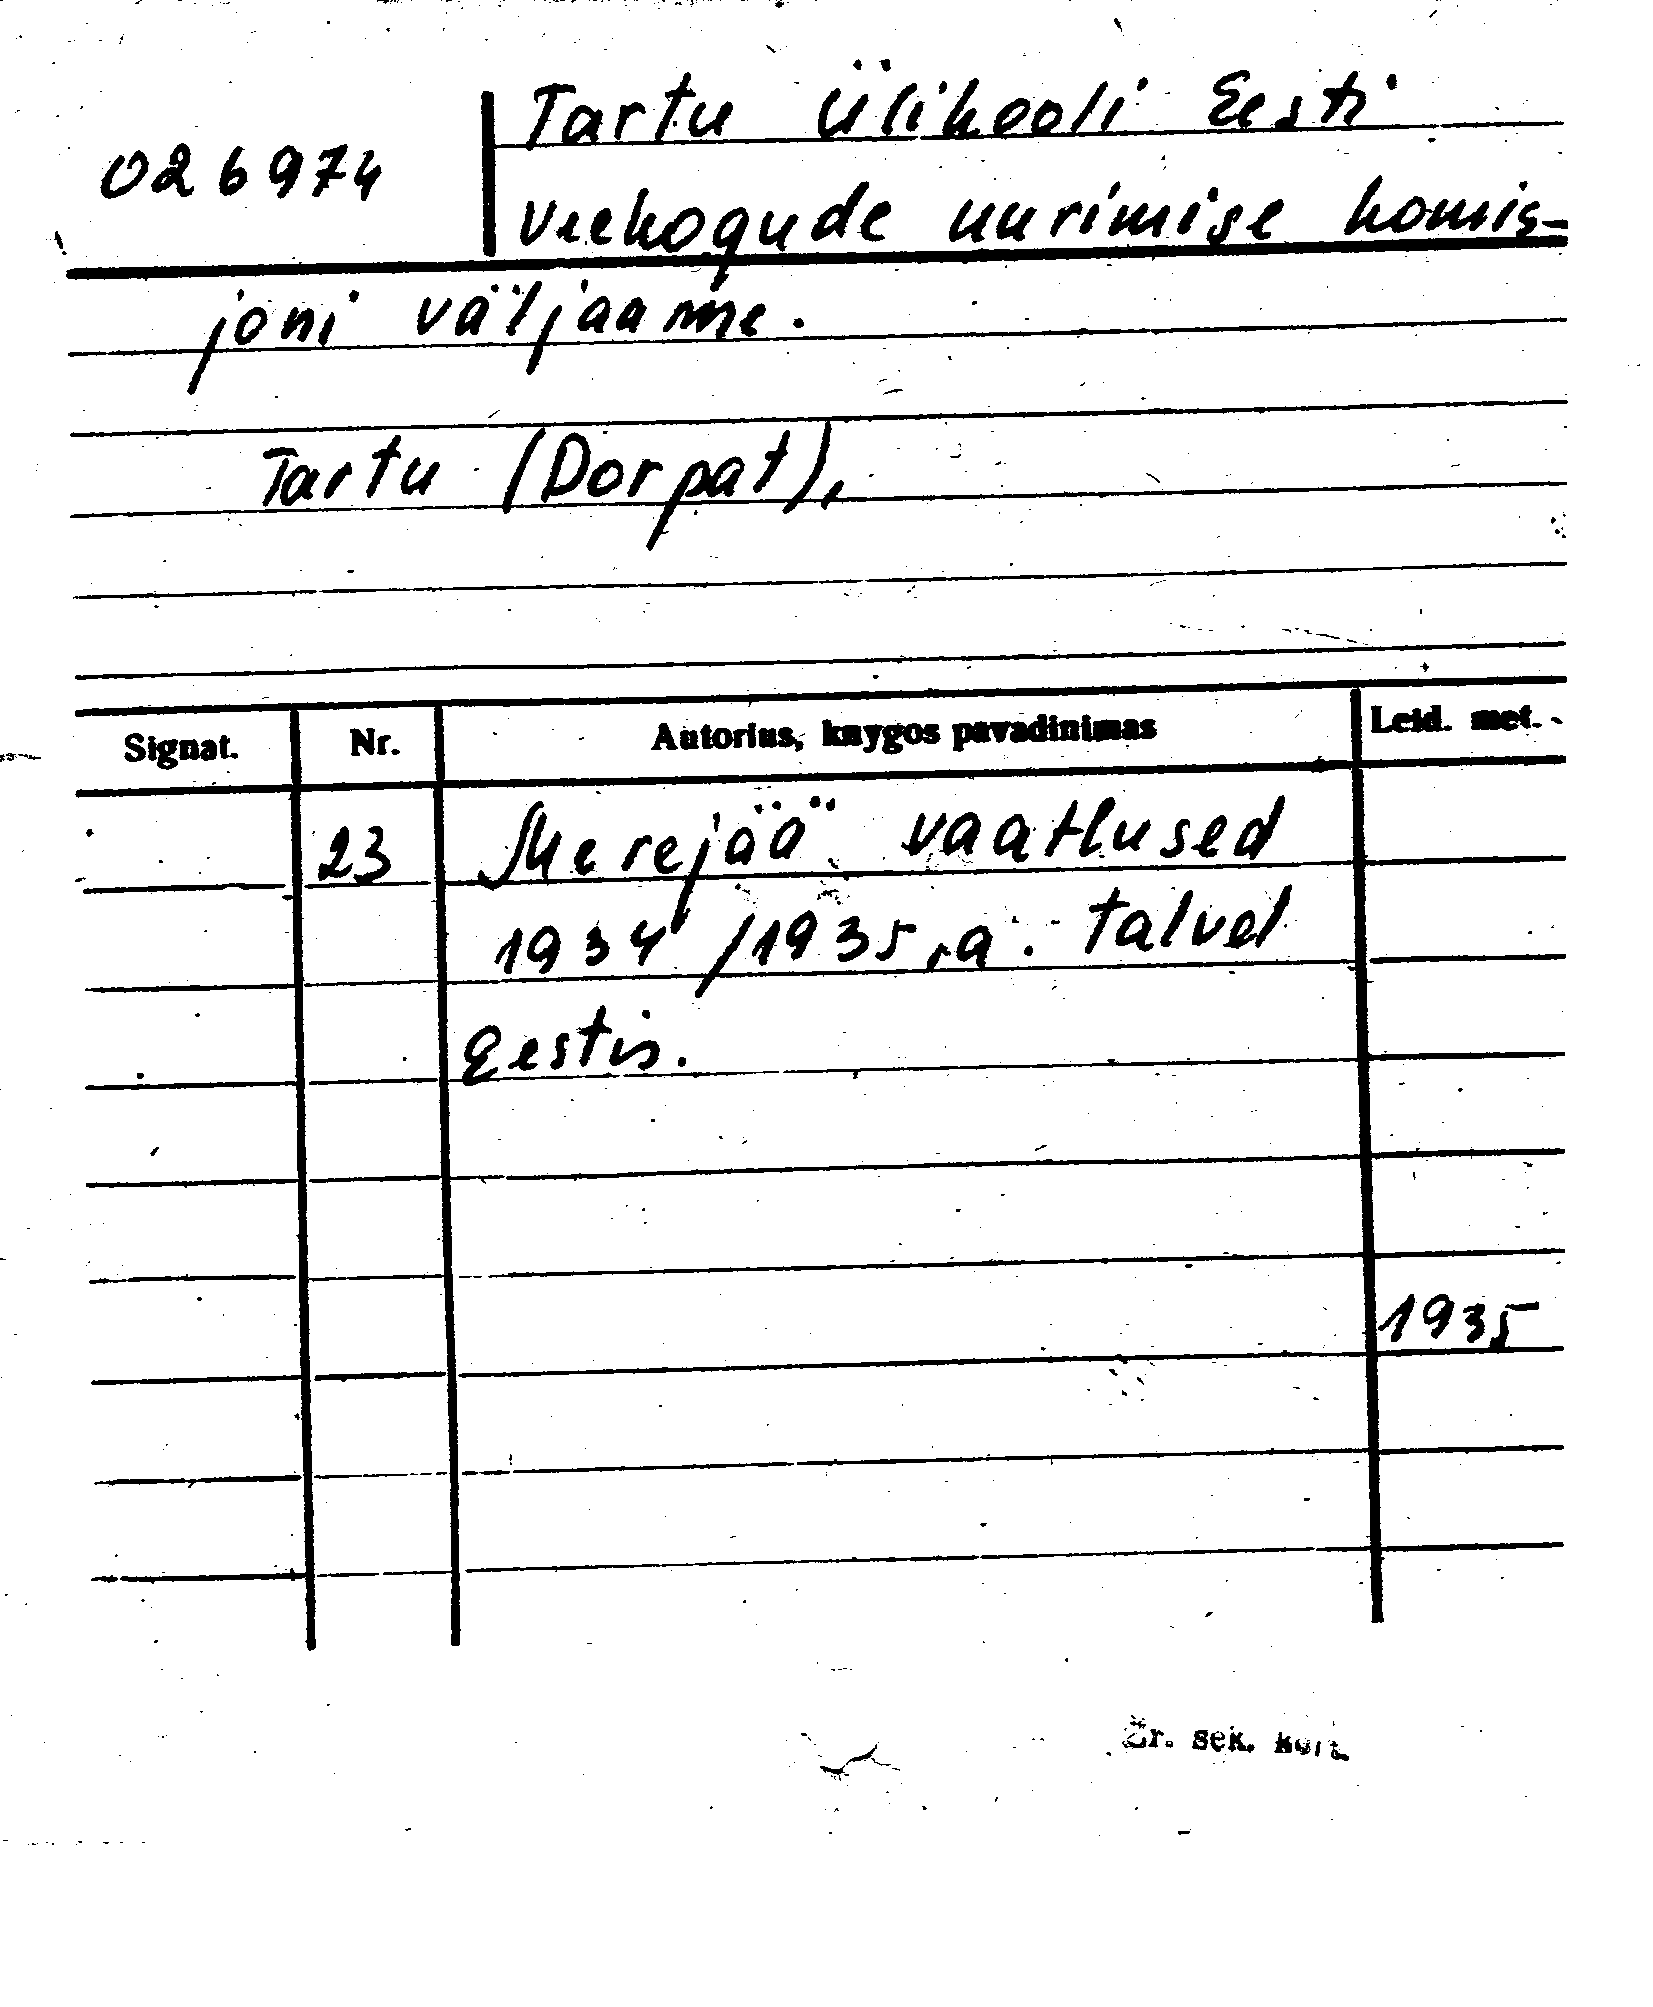 Tartu Ülikooli Eesti
026974
veekogude uurimise komis-
joni väljaanne.
Tartu (Dorpat),
Signat. Nr. Autorius, knygos pavadinimas Leid. met.
23 Merejää vaatlused
1934/1935.a. talvel
Eestis.
1935
Žr. sek. kort.